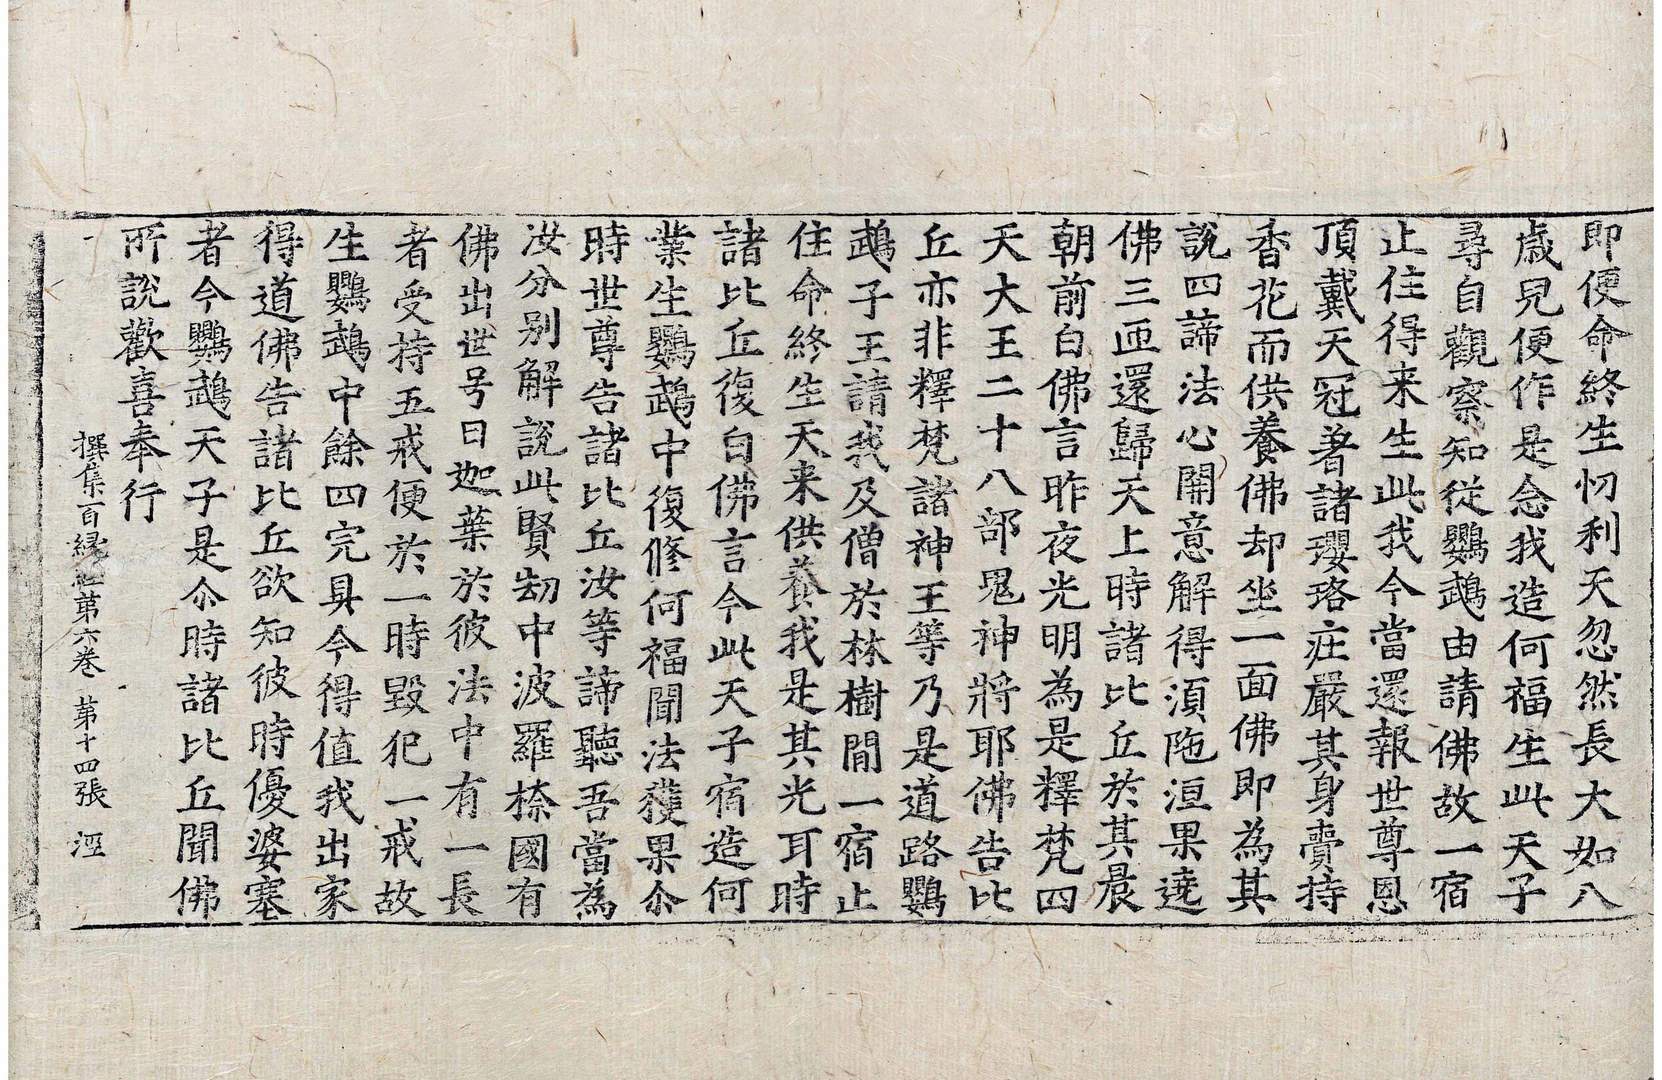 即便命終生忉利天忽然長大如八
歲見便作是念我造何福生此天子
尋自觀察知從鸚鵡由請佛故一宿
止住得来生此我今當還報世尊恩
頂戴天冠著諸瓔珞庄嚴其身賫持
香花而供養佛却坐一面佛即為其
說四諦法心開意解得須陁洹果遶
佛三匝還歸天上時諸比丘於其晨
朝前白佛言昨夜光明為是釋梵四
天大王二十八部鬼神將耶佛告比
丘亦非釋梵諸神王等乃是道路鸚
鵡子王請我及僧於林樹間一宿止
住命終生天来供養我是其光耳時
諸比丘復白佛言今此天子宿造何
業生鸚鵡中復修何福聞法獲果尒
時世尊告諸比丘汝等諦聽吾當為
汝分別解說此賢劫中波羅㮈國有
佛出世号曰迦葉於彼法中有一長
者受持五戒便於一時毀犯一戒故
生鸚鵡中餘四完具今得值我出家
得道佛告諸比丘欲知彼時優婆塞
者今鸚鵡天子是尒時諸比丘聞佛
所說歡喜奉行
撰集百緣經第六卷 第十四張 淫